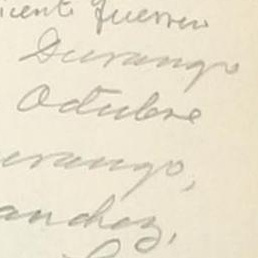 icente Guerrero
Durango
Octubre
urango,
anchez,